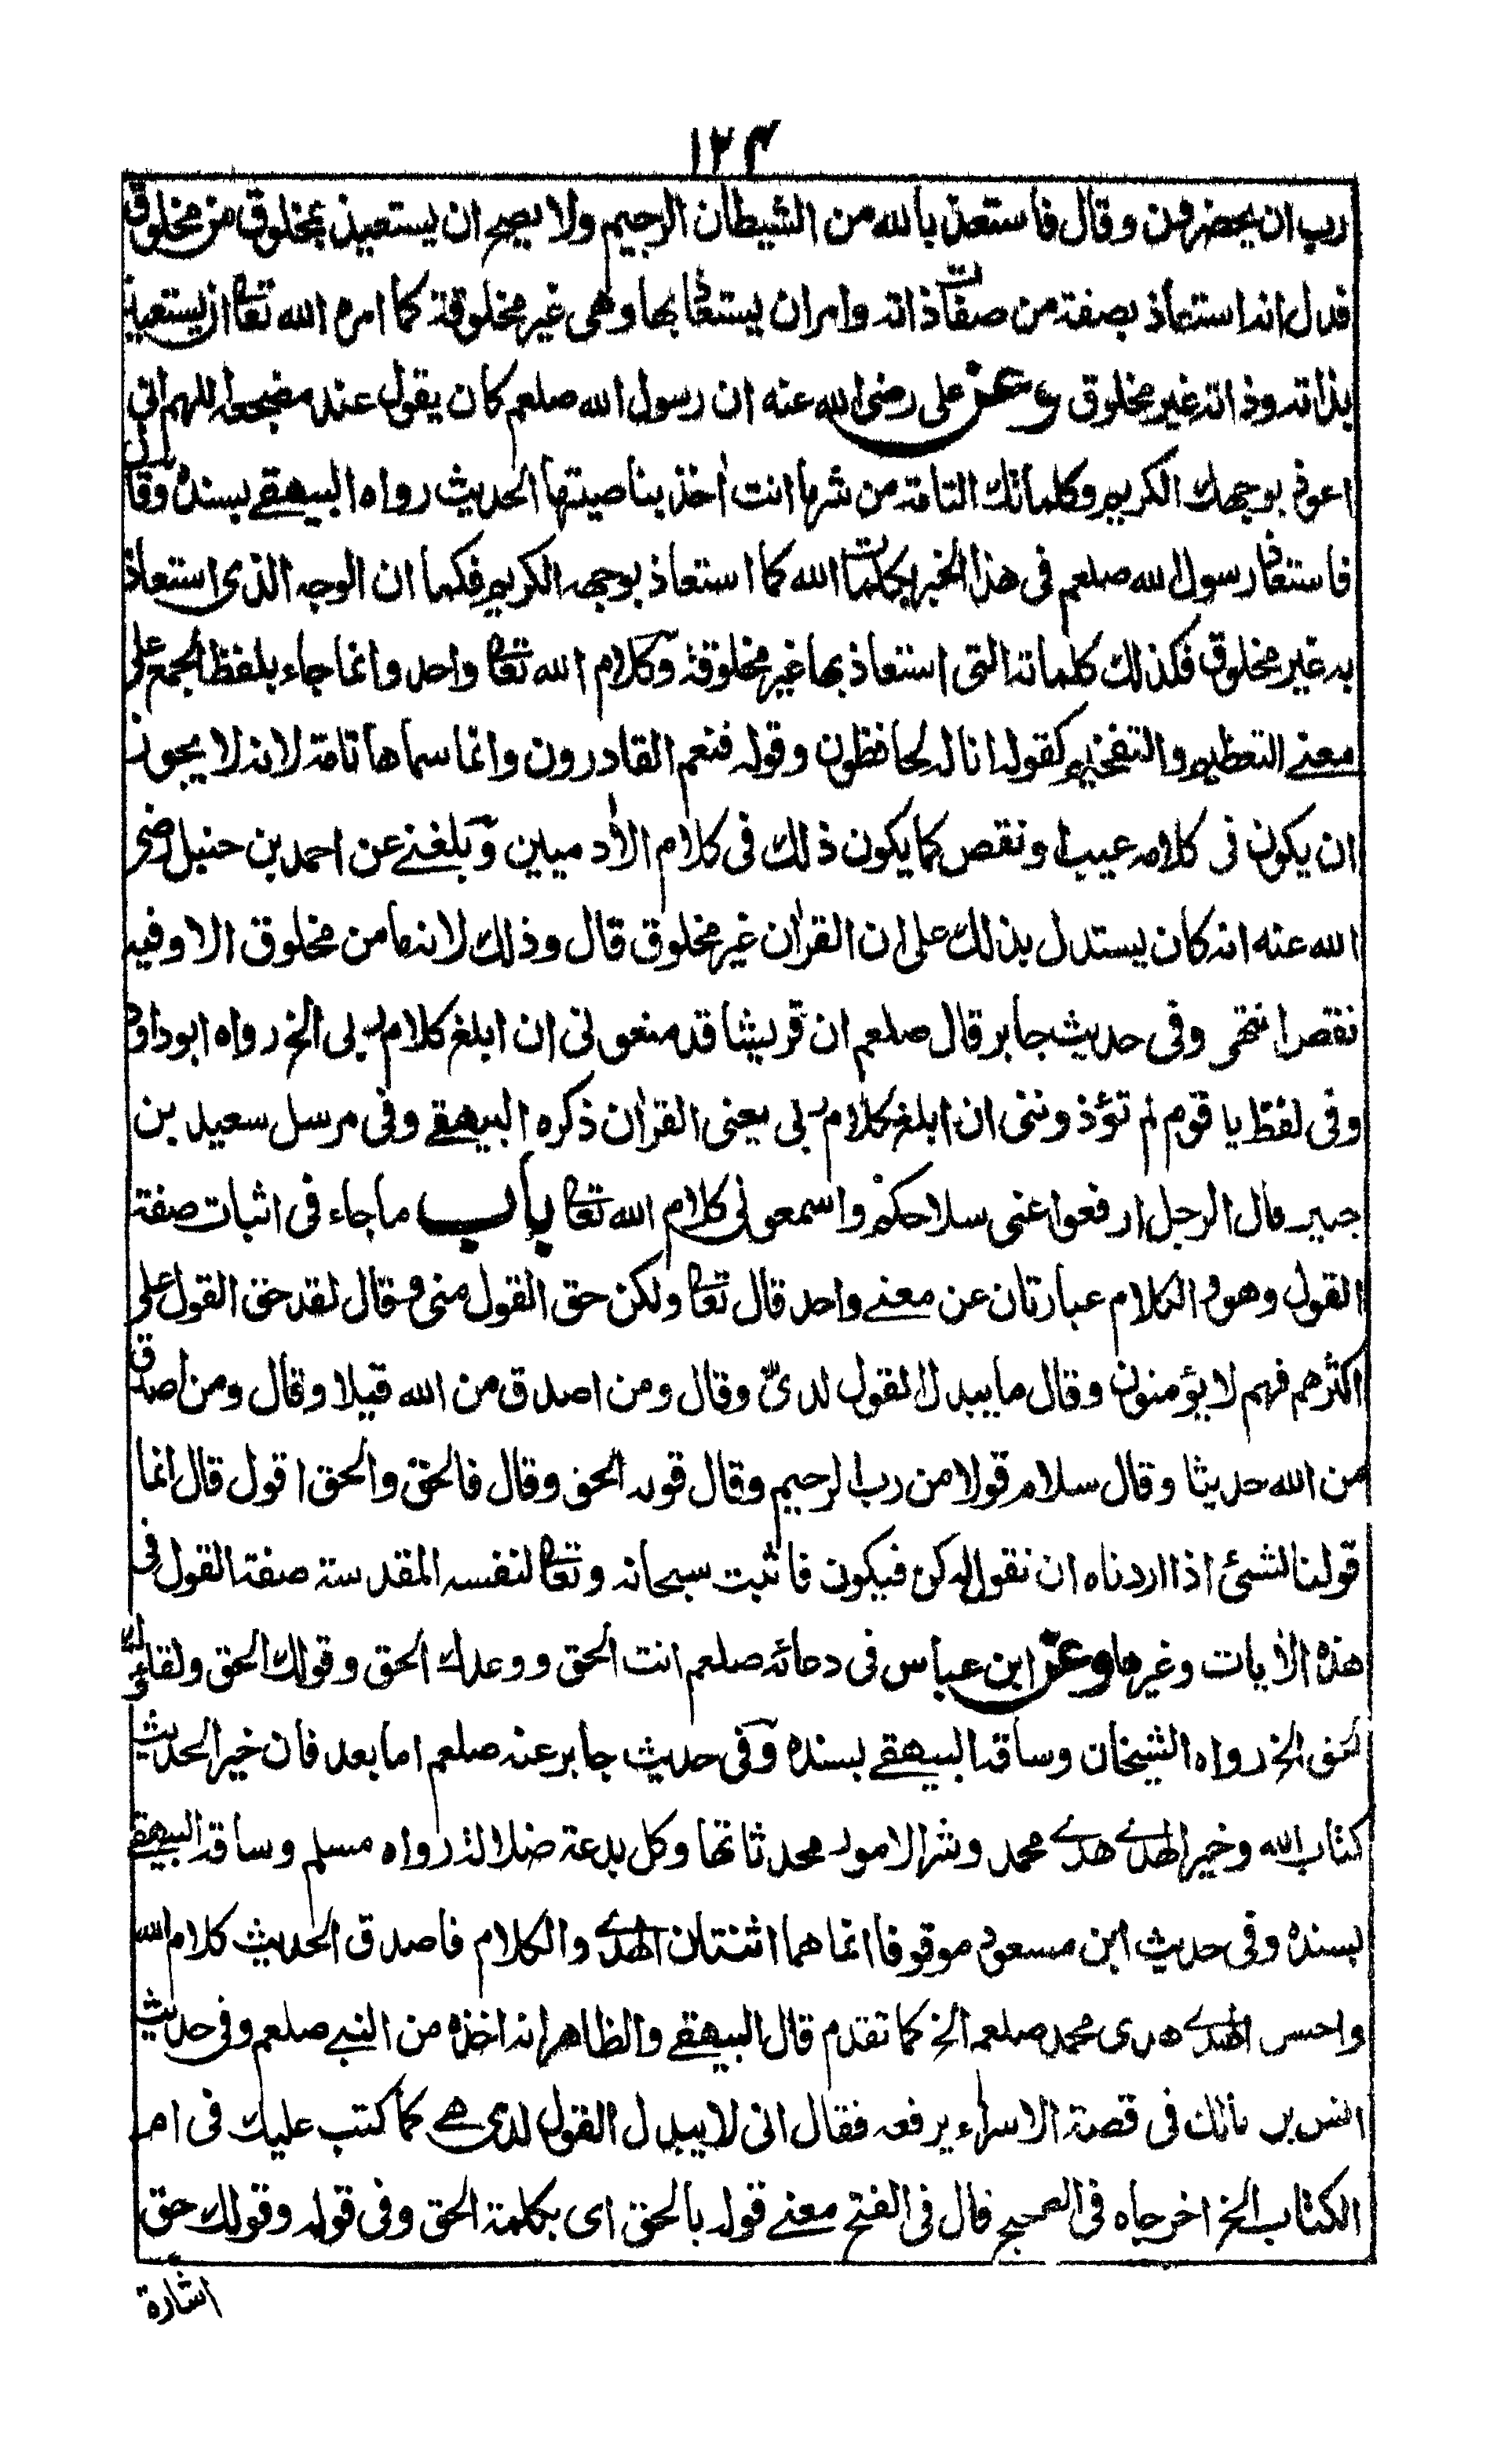 ١٢٤
رب ان يحضرون وقال فاستعذ بالله من الشيطان الرجيم ولا يصح ان يستعيذ بمخلوق من مخلوق
فدل انه استعاذ بصفة من صفات ذاته وامر ان يستعاذ بها وهى غير مخلوقة كما امره الله تعا ان يستعيذ
بذاته وذاته غير مخلوق وعن على رضى الله عنه ان رسول الله صلعم كان يقول عند مضجعه اللهم انى
اعوذ بوجهك الكريم وكلماتك التامة من شر ما انت اخذ بناصيتها الحديث رواه البيهقے بسنده وقال
فاستعاذ رسول الله صلعم فى هذا الخبر بكلمات الله كما استعاذ بوجهه الكريم فكما ان الوجه الذى استعاذ
به غير مخلوق فكذلك كلماته التى استعاذ بها غير مخلوقة وكلام الله تعا واحد وانما جاء بلفظ الجمع على
معنے التعظيم والتفخيم كقوله انا له لحافظون وقوله فنعم القادرون وانما سماها تامة لانه لا يجوز
ان يكون فى كلامه عيب او نقص كما يكون ذلك فى كلام الأدميين وبلغنے عن احمد بن حنبل رضى
الله عنه انه كان يستدل بذلك على ان القرأن غير مخلوق قال وذلك لانه ما من مخلوق الا وفيه
نقص انتهى وفى حديث جابر قال صلعم ان قريشا قد منعونى ان ابلغ كلام ربى الخ رواه ابوداود
وفى لفظ يا قوم لم تؤذوننى ان ابلغ كلام ربى يعنى القرأن ذكره البيهقے وفى مرسل سعيد بن
جبير قال الرجل ارفعوا عنى سلاحكم واسمعونى كلام الله تعا باب ما جاء فى اثبات صفة
القول وهو والكلام عبارتان عن معنے واحد قال تعا ولكن حق القول منى وقال لقد حق القول على
اكثرهم فهم لا يؤمنون وقال ما يبدل القول لدىّ وقال ومن اصدق من الله قيلا وقال ومن اصدق
من الله حديثا وقال سلام قولا من رب الرحيم وقال قوله الحق وقال فالحق والحق اقول قال انما
قولنا لشئ اذا اردناه ان نقول له كن فيكون فاثبت سبحانه وتعا لنفسه المقدسة صفة القول فى
هذه الأيات وغيرها وعن ابن عباس فى دعائه صلعم انت الحق ووعدك الحق وقولك الحق ولقاؤك
الحق الخ رواه الشيخان وساقه البيهقے بسنده وفى حديث جابر عنه صلعم اما بعد فان خير الحديث
كتاب الله وخير الهدے هدے محمد وشر الامور محدثاتها وكل بدعة ضلالة رواه مسلم وساقه البيهقے
بسنده وفى حديث ابن مسعود موقوفا انما هما اثنتان الهدے والكلام فاصدق الحديث كلام الله
واحسن الهدے هدى محمد صلعم الخ كما تقدم قال البيهقے والظاهر انه اخذه من النبے صلعم وفى حديث
انس بن مالك فى قصة الاسراء يرفعه فقال انى لا يبدل القول لدى هے كما كتب عليك فى ام
الكتاب الخ اخرجاه فى الصحيح قال فى الفتح معنے قوله بالحق اى بكلمة الحق وفى قوله وقولك حق
اشارة